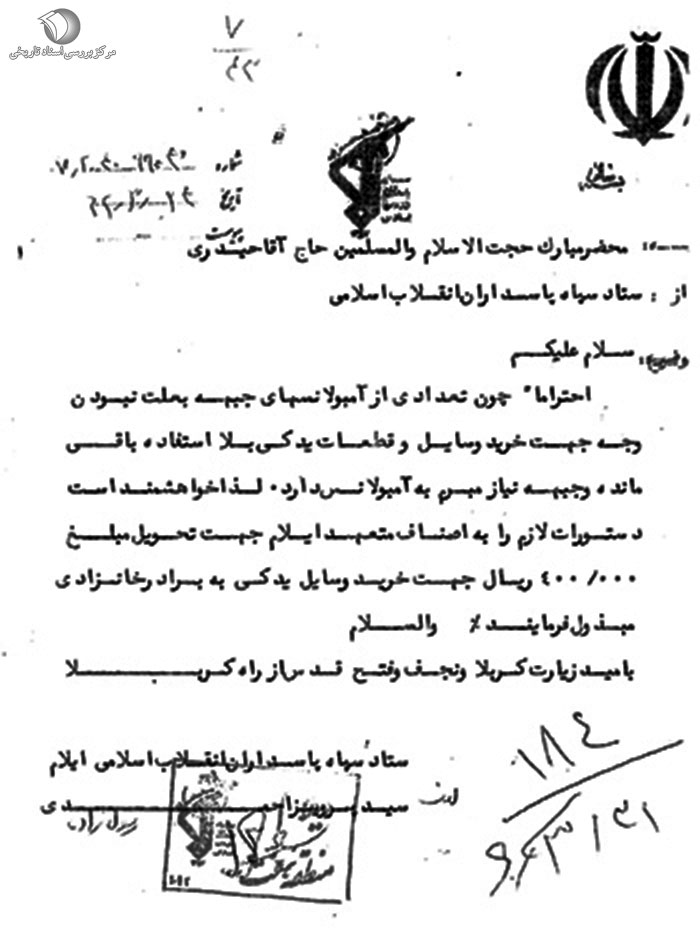 مرکز بررسی اسناد تاریخی
۷
۴۲
شماره
تاریخ
پیوست
محضر مبارک حجت الاسلام والمسلمین حاج آقا حیدری
از : ستاد سپاه پاسداران انقلاب اسلامی
موضوع: سلام علیکم
احتراما" چون تعدادی از آمبولانسهای جبهه بعلت نبودن
وجه جهت خرید وسایل و قطعات یدکی بلا استفاده باقی
مانده وجبهه نیاز مبرم به آمبولانس دارد. لذا خواهشمند است
دستورات لازم را به اصناف متعهد ایلام جهت تحویل مبلغ
۴۰۰/۰۰۰ ریال جهت خرید وسایل یدکی به برادر خانزادی
مبذول فرمایند ٪ والسلام
بامید زیارت کربلا ونجف وفتح قدس از راه کربلا
ستاد سپاه پاسداران انقلاب اسلامی ایلام
سید
۱۸۴